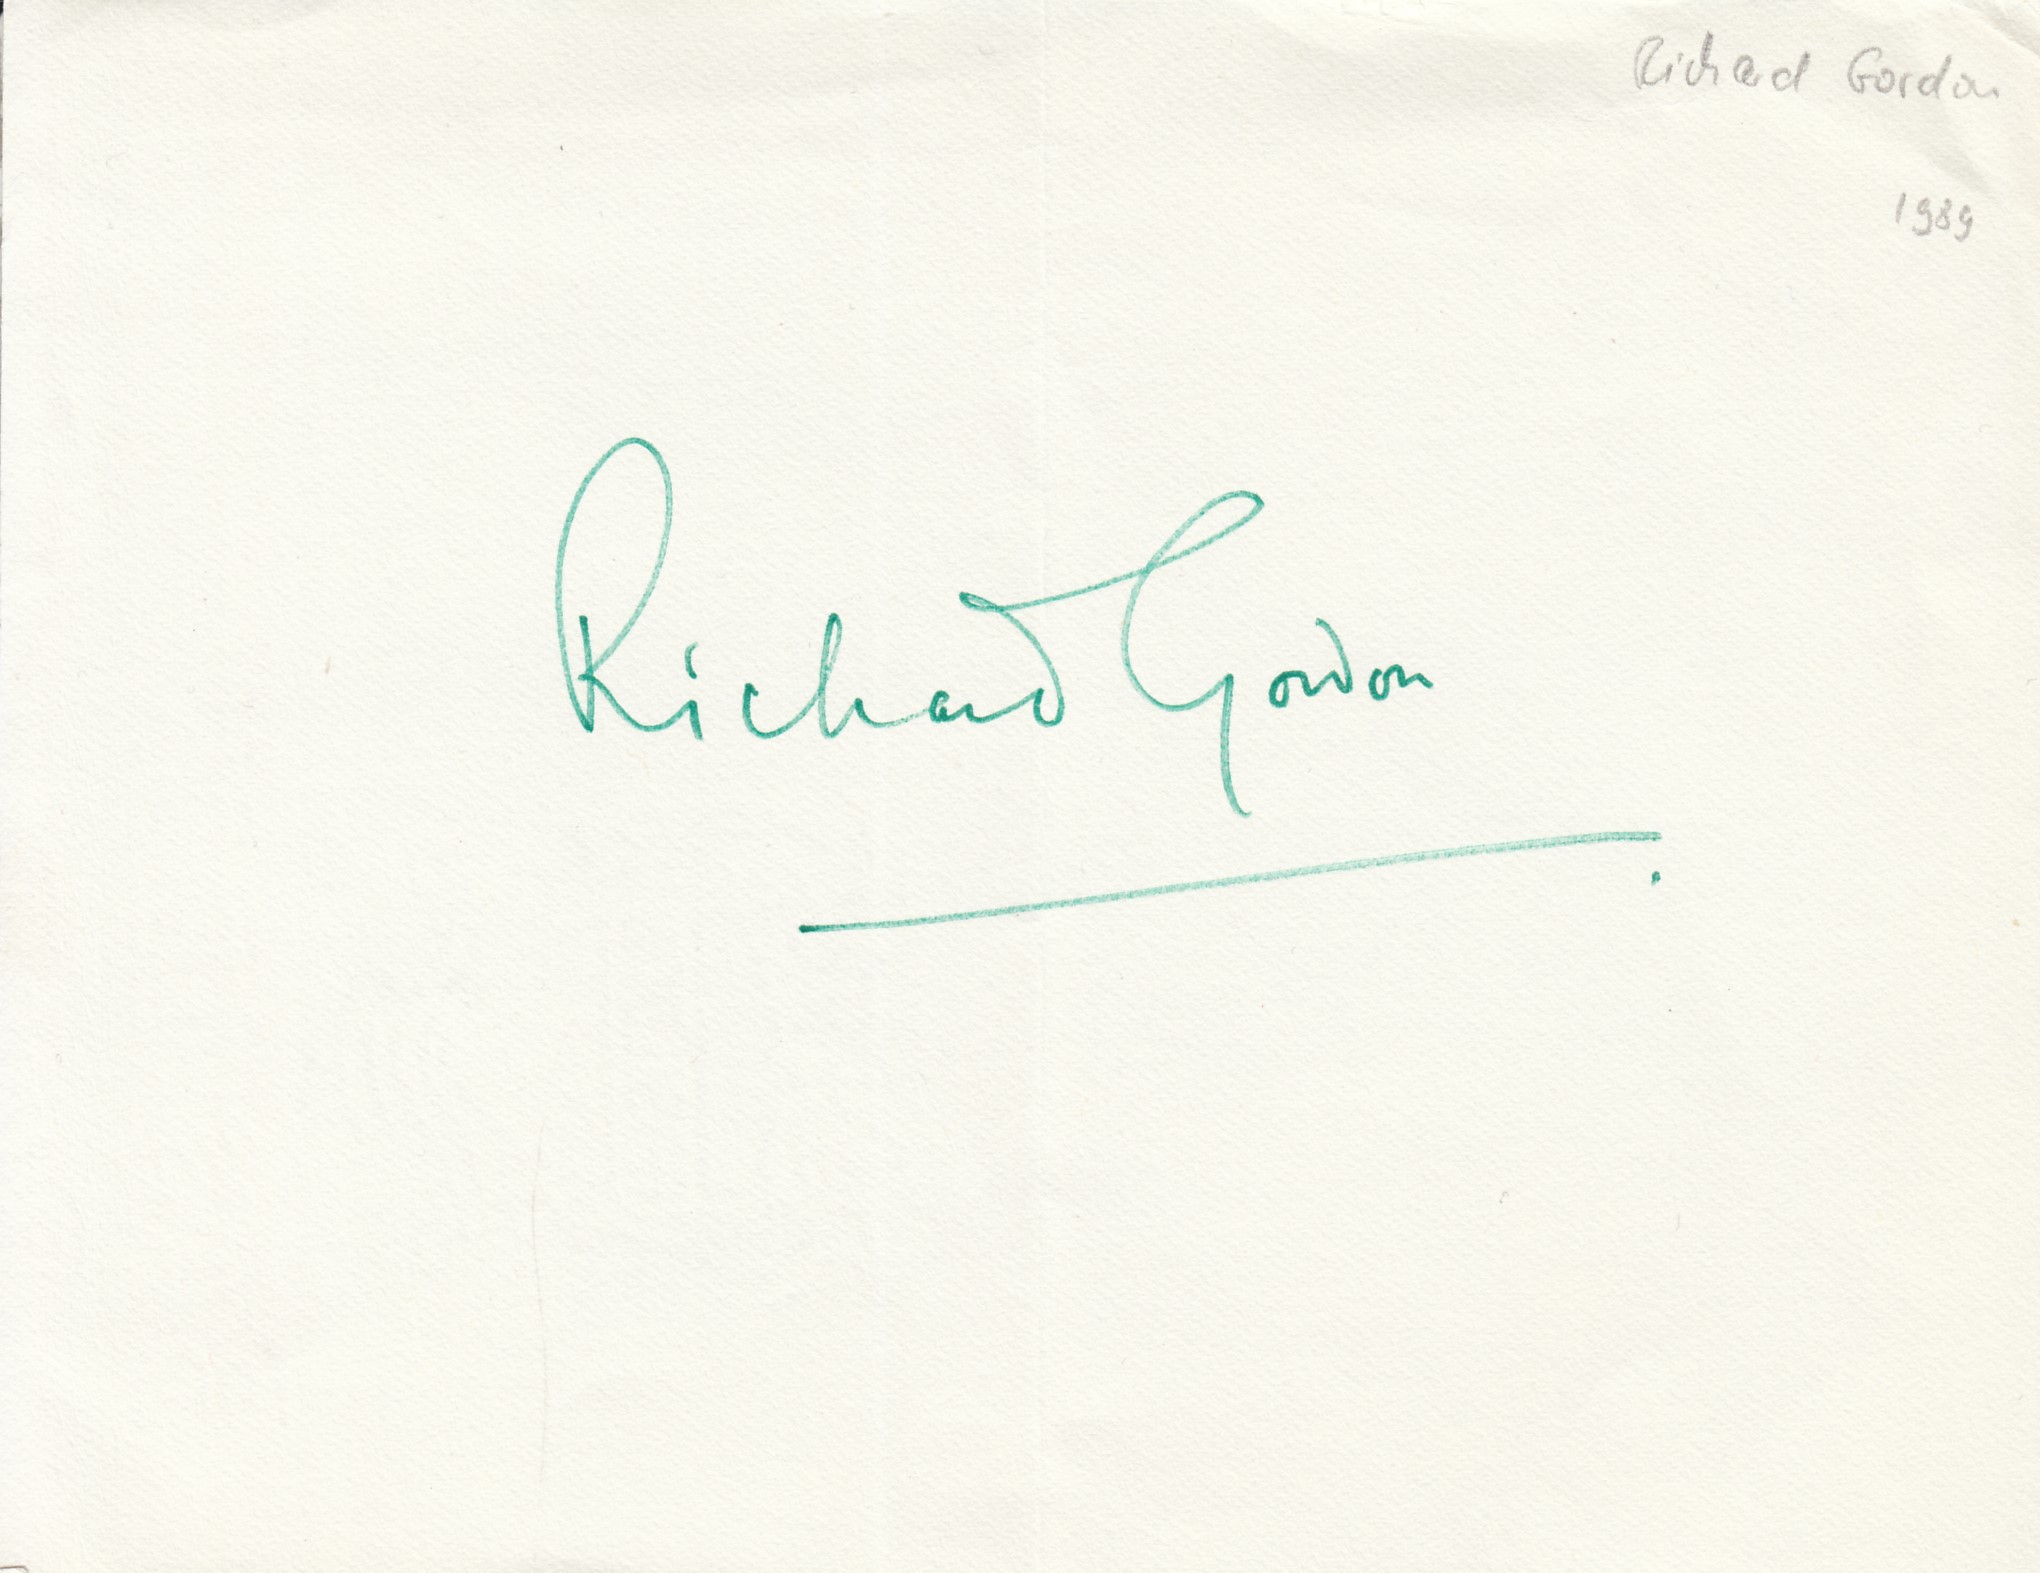 Richard Gordon
1989
Richard Gordon